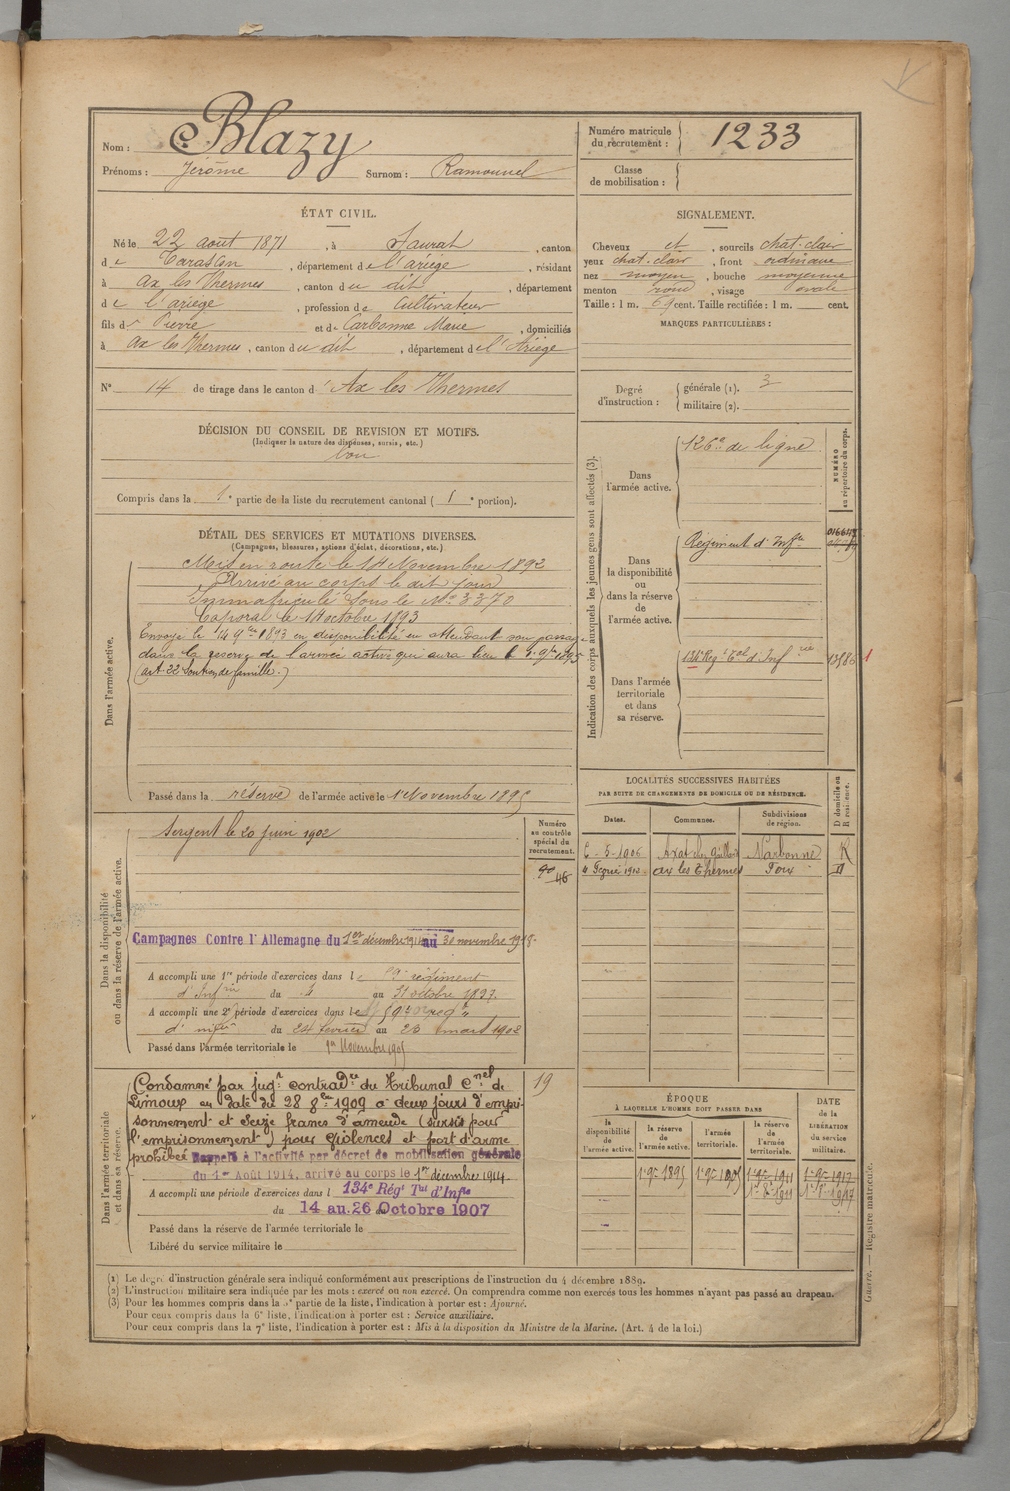 Nom : Blazy
Prénoms : Jérôme Surnom : Ramounel
Numéro matricule du recrutement : 1233
Classe de mobilisation :
ÉTAT CIVIL.
Né le 22 août 1871, à Saurat, canton
de Tarascon, département de l'ariège, résidant
à Ax les Thermes, canton du dit, département
de l'ariège, profession de Cultivateur
fils de Pierre et de Carbonne Marie, domiciliés
à Ax les Thermes, canton du dit, département de l'Ariège
SIGNALEMENT.
Cheveux et, sourcils chat-clair
yeux chat-clair, front ordinaire
nez moyen, bouche moyenne
menton rond, visage ovale
Taille : 1 m. 69 cent. Taille rectifiée : 1 m. cent.
MARQUES PARTICULIÈRES :
N° 14 de tirage dans le canton d'Ax les Thermes
Degré d'instruction :
générale (1). 3
militaire (2).
DÉCISION DU CONSEIL DE REVISION ET MOTIFS.
(Indiquer la nature des dispenses, sursis, etc.)
bon
Compris dans la 1e partie de la liste du recrutement cantonal (1e portion).
DÉTAIL DES SERVICES ET MUTATIONS DIVERSES.
(Campagnes, blessures, actions d'éclat, décorations, etc.)
Dans l'armée active.
Mis en route le 14 Novembre 1892
Arrivé au corps le dit jour
Immatriculé sous le No 3370
Caporal le 14 octobre 1893
Envoyé le 14 9bre 1893 en disponibilité en attendant son passage
dans la réserve de l'armée active qui aura lieu le 1. 9bre 1895
(art. 22 Soutien de famille.)
Passé dans la réserve de l'armée active le 1 Novembre 1895
Indication des corps auxquels les jeunes gens sont affectés (3).
NUMÉRO au répertoire du corps.
Dans l'armée active.
126e de ligne
Dans la disponibilité ou dans la réserve de l'armée active.
Régiment d'Infie
Dans l'armée territoriale et dans sa réserve.
134e Rég. Tal d'Infrie
13586
1
LOCALITÉS SUCCESSIVES HABITÉES
PAR SUITE DE CHANGEMENTS DE DOMICILE OU DE RÉSIDENCE.
Dates. Communes. Subdivisions de région. D domicile ou R résidence.
6 - 5 - 1906 Axat Narbonne R
ax les Thermes Foix D
Dans la disponibilité ou dans la réserve de l'armée active.
Numéro au contrôle spécial du recrutement.
Sergent le 20 juin 1902
Campagnes Contre l'Allemagne du 1er décembre 1914 au 30 novembre 1918.
A accompli une 1re période d'exercices dans le régiment
d'Infrie du 4 au 31 octobre 1897.
A accompli une 2e période d'exercices dans le
d'infie du 24 février au 23 mars 1902
Passé dans l'armée territoriale le 1er Novembre 1905
Dans l'armée territoriale et dans sa réserve.
19
Condamné par jugt contradre du Tribunal Cnel de
Limoux en date du 28 8bre 1909 à deux jours d'empri-
sonnement et seize francs d'amende (sursis pour
l'emprisonnement) pour violences et port d'arme
prohibée Rappelé à l'activité par décret de mobilisation générale
du 1er Août 1914, arrivé au corps le 1er décembre 1914.
A accompli une période d'exercices dans l 134e Régt Tal d'Infie
du 14 au 26 Octobre 1907
Passé dans la réserve de l'armée territoriale le
Libéré du service militaire le
ÉPOQUE
À LAQUELLE L'HOMME DOIT PASSER DANS
la disponibilité de l'armée active.
la réserve de l'armée active.
l'armée territoriale.
la réserve de l'armée territoriale.
DATE de la LIBÉRATION du service militaire.
1. 9bre 1895 1. 9bre 1905 1. 9bre 1911 1. 9bre 1917
(1) Le degré d'instruction générale sera indiqué conformément aux prescriptions de l'instruction du 4 décembre 1889.
(2) L'instruction militaire sera indiquée par les mots : exercé ou non exercé. On comprendra comme non exercés tous les hommes n'ayant pas passé au drapeau.
(3) Pour les hommes compris dans la 5e partie de la liste, l'indication à porter est : Ajourné.
Pour ceux compris dans la 6e liste, l'indication à porter est : Service auxiliaire.
Pour ceux compris dans la 7e liste, l'indication à porter est : Mis à la disposition du Ministre de la Marine. (Art. 4 de la loi.)
Guerre. — Registre matricule.